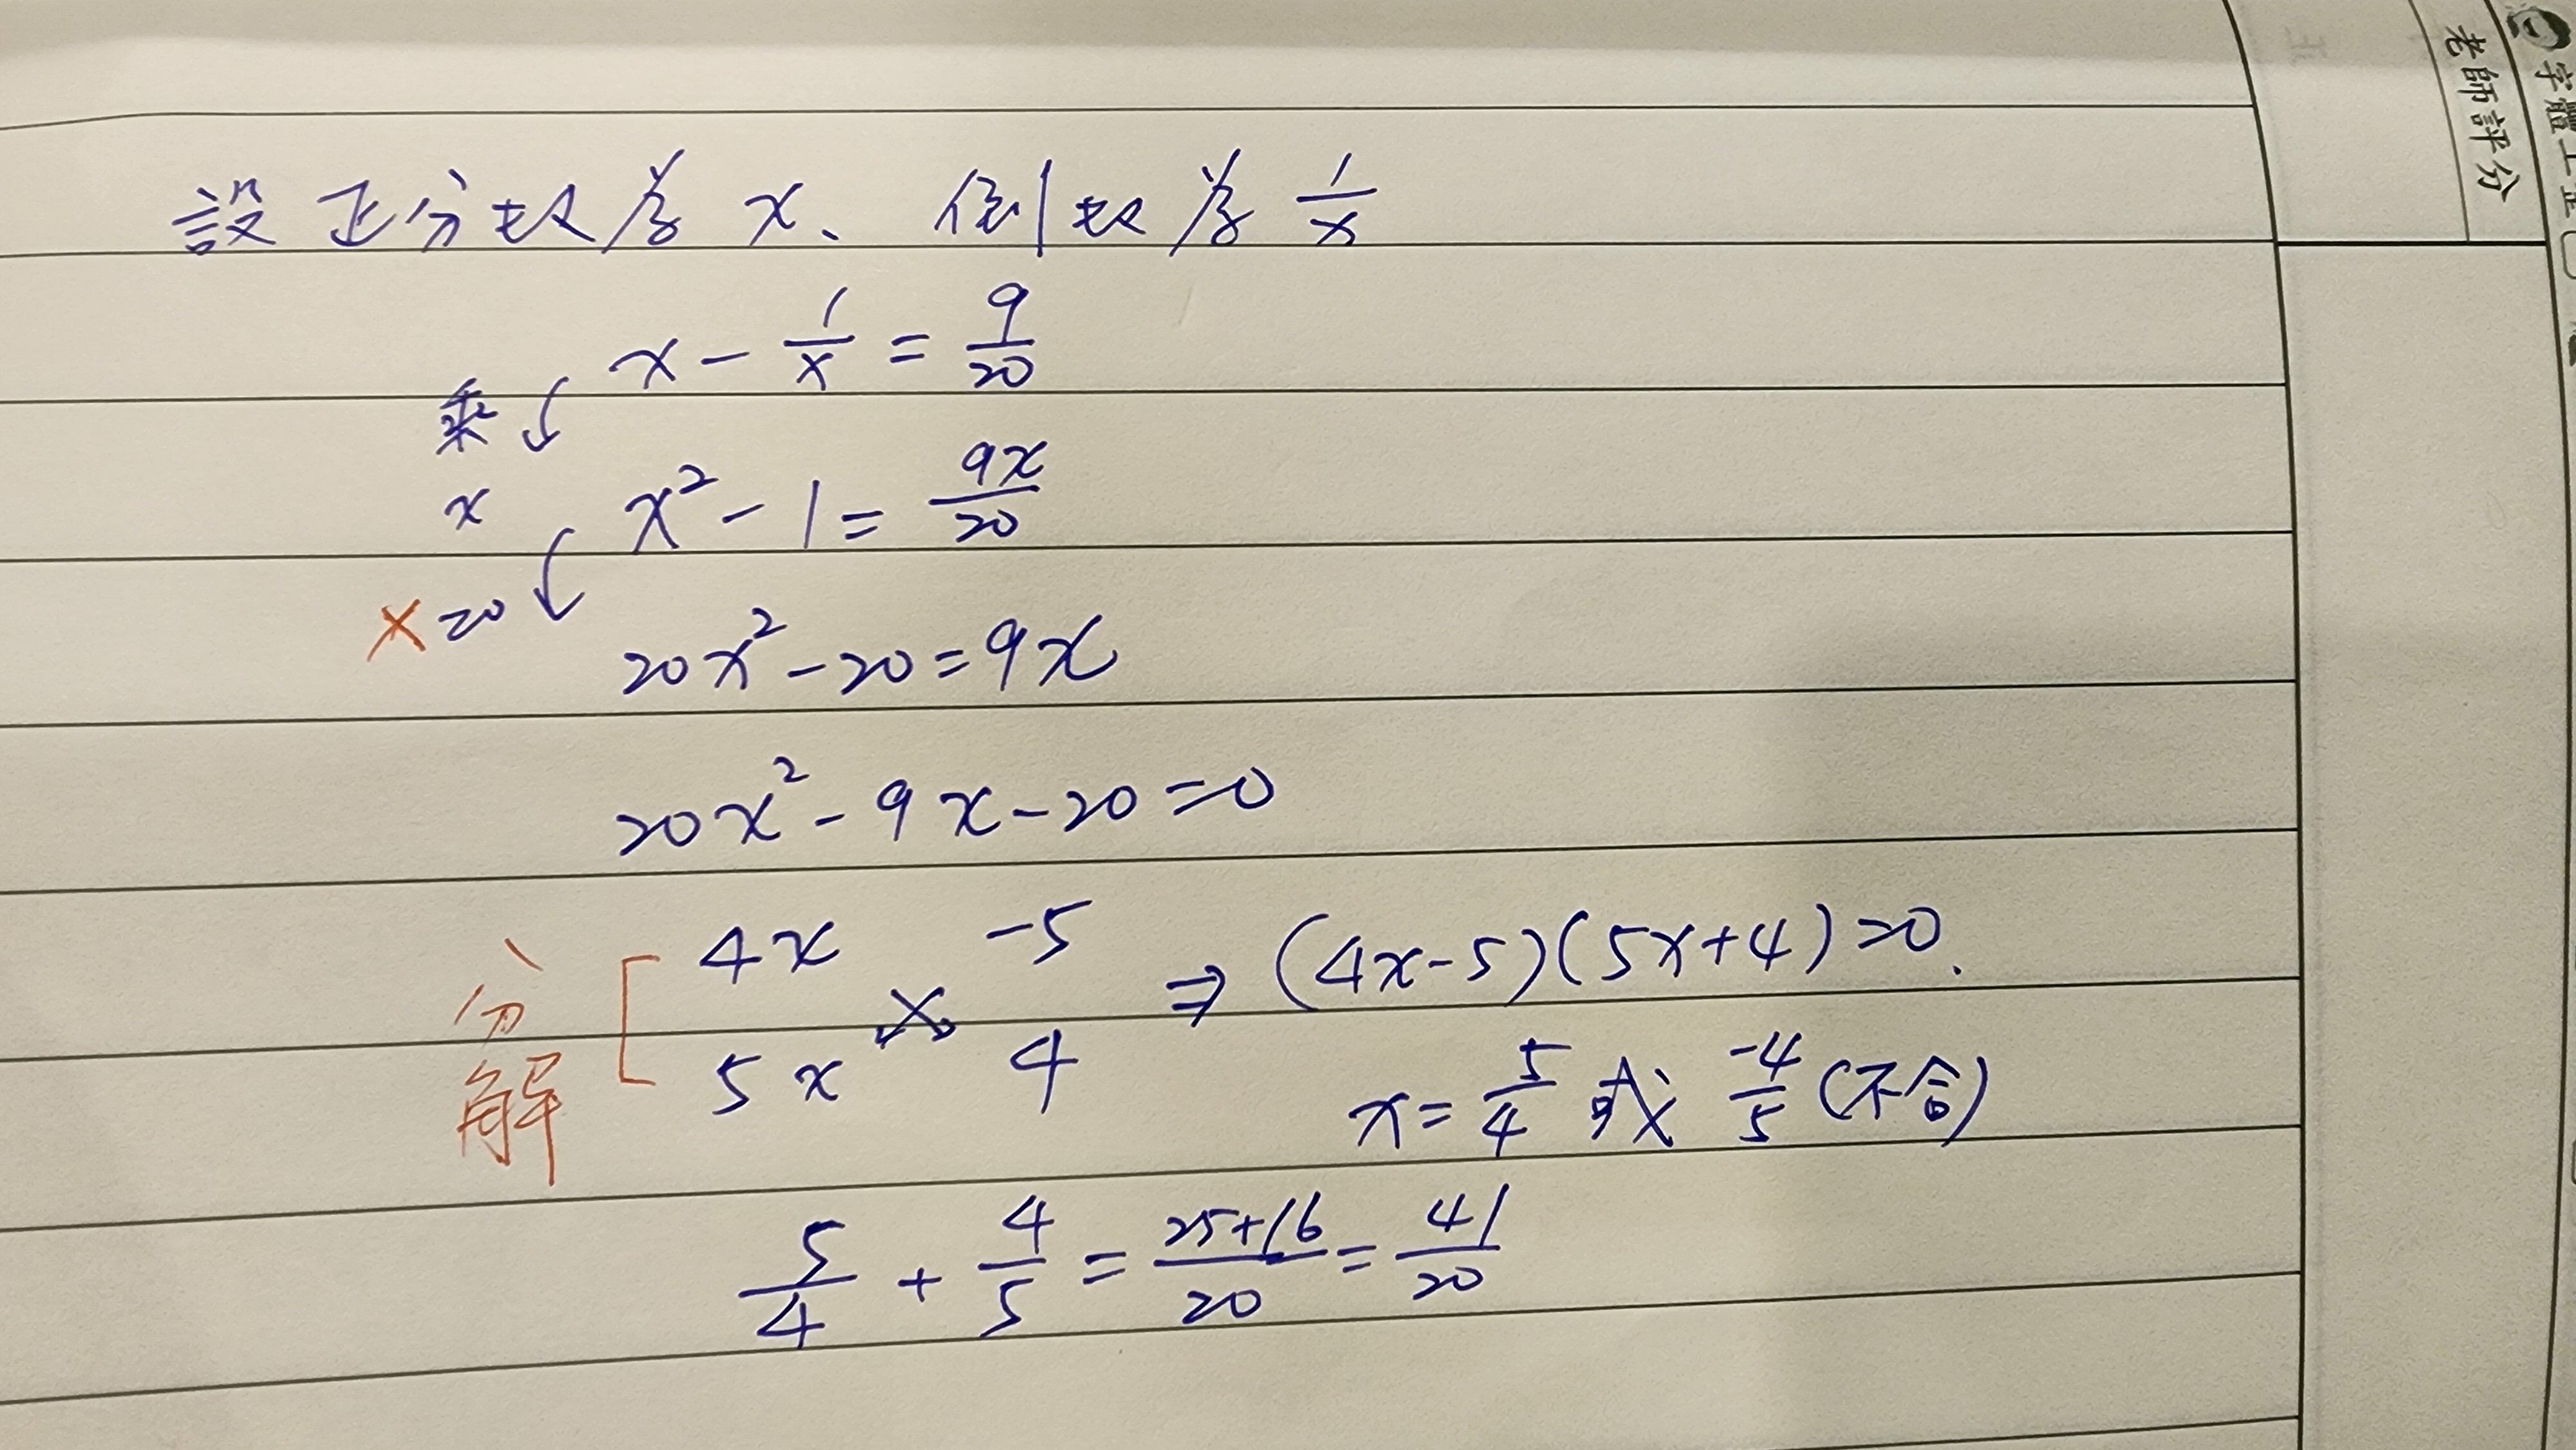 設正分数為 x、倒数為 1/x
x - 1/x = 9/20
乘 x
x² - 1 = 9x/20
×20
20x² - 20 = 9x
20x² - 9x - 20 = 0
分解
4x -5
5x 4
⇒ (4x-5)(5x+4)=0.
x = 5/4 或 -4/5 (不合)
5/4 + 4/5 = 25+16/20 = 41/20
老師評分